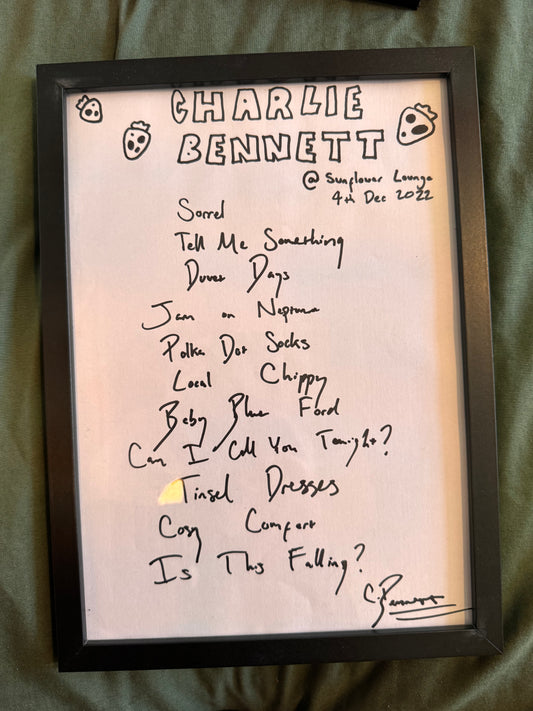 CHARLIE
BENNETT
@ Sunflower Lounge
4th Dec 2022
Sorrel
Tell Me Something
Duvet Days
Jam on Neptune
Polka Dot Socks
Local Chippy
Baby Blue Ford
Can I Call You Tonight?
Tinsel Dresses
Cosy Comfort
Is This Falling?
C. Bennett